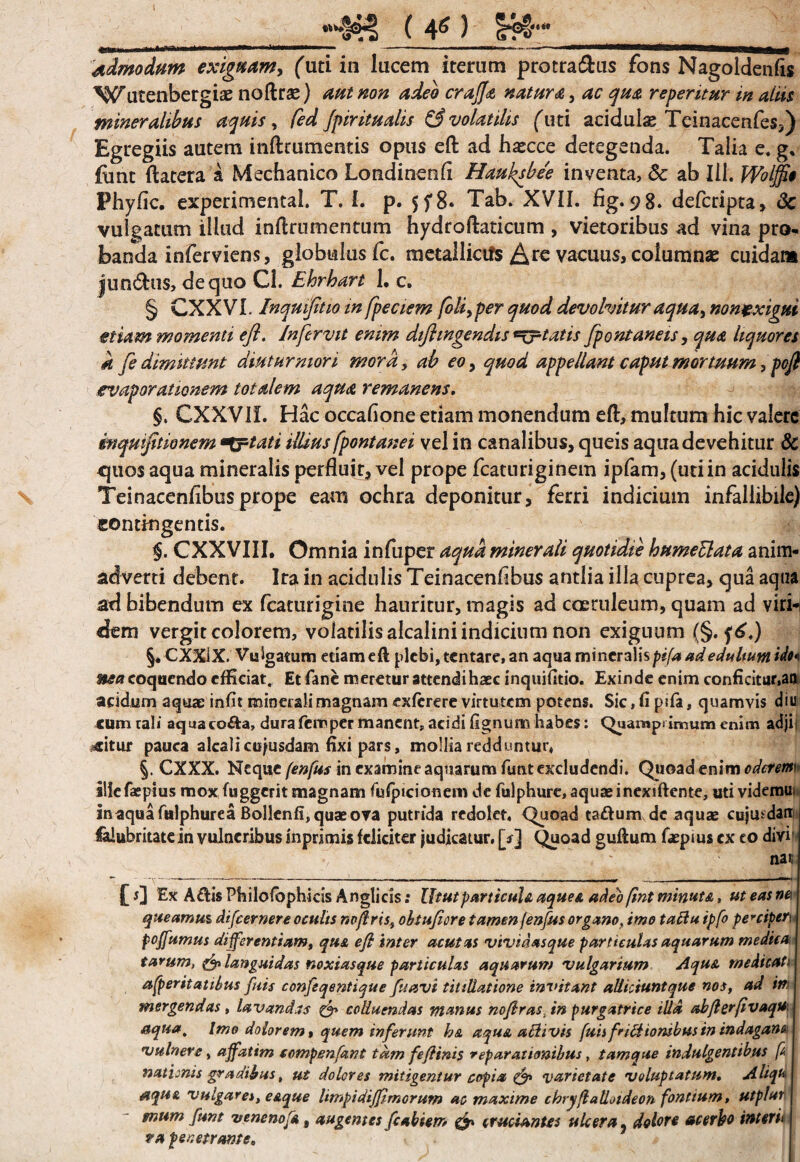 ( 46 )
admodum exiguam, (uti in lucem iterum protractus fons Nagoldensis
Wutenbergiæ nostræ) aut non adeo crassæ naturæ, ac quæ reperitur in aliis
mineralibus aquis, sed spiritualis & volatilis (uti acidulæ Teinacenses,)
Egregiis autem instrumentis opus est ad hæcce detegenda. Talia e. g.
sunt statera à Mechanico Londinensi Hauksbée inventa, & ab Ill. Wolffio
Physic. experimental. T. I. p. 558. Tab. XVII. fig. 98. descripta, &
vulgatum illud instrumentum hydrostaticum, vietoribus ad vina pro-
banda inserviens, globulus sc. metallicus Are vacuus, columnæ cuidam
junctus, de quo Cl. Ehrhart l. c.
§ CXXVI. Inquisitio in speciem soli, per quod devolvitur aqua, non exigui
etiam momenti est. Inservit enim distingendis tatis spontaneis, quæ liquores
à se dimittunt diuturniori morâ, ab eo, quod appellant caput mortuum, post
evaporationem totalem aquæ remanens.
§. CXXVII. Hâc occasione etiam monendum est, multum hic valere
inquisitionem tati illius spontanei vel in canalibus, queis aqua devehitur &
quos aqua mineralis perfluit, vel prope scaturiginem ipsam, (uti in acidulis
Teinacensibus prope eam ochra deponitur, ferri indicium infallibile)
contingentis.
§. CXXVIII. Omnia insuper aquâ minerali quotidie humectata anim-
adverti debent. Ita in acidulis Teinacensibus antlia illa cuprea, quâ aqua
ad bibendum ex scaturigine hauritur, magis ad cœruleum, quam ad viri-
dem vergit colorem, volatilis alcalini indicium non exiguum (§. 56.)
§. CXXIX. Vulgatum etiam est plebi, tentare, an aqua mineralis pisa ad edulium ido-
nea coquendo efficiat. Et sanè meretur attendi hæc inquisitio. Exinde enim conficitur, an
acidum aquæ insit minerali magnam exserere virtutem potens. Sic, si pisa, quamvis diu
cum tali aqua cocta, dura semper manent, acidi signum habes: Quamprimum enim adji-
citur pauca alcali cujusdam fixi pars, mollia redduntur.
§. CXXX. Neque sensus in examine aquarum sunt excludendi. Quoad enim odorem
ille sæpius mox suggerit magnam suspicionem de sulphure, aquæ inexistente, uti videmus
in aqua sulphurea Bollensi, quæ ova putrida redolet. Quoad tactum de aquæ cujusdam
salubritate in vulneribus inprimis feliciter judicatur. [s] Quoad gustum sæpius ex eo divi-
nat
[s] Ex Actis Philosophicis Anglicis: Utut particulæ aqueæ adeò sint minutæ, ut eas ne
queamus discernere oculis nostris, obtusiore tamen sensus organo, imo tactu ipso percipere
possumus differentiam, quæ est inter acutas vividasque particulas aquarum medica
tarum, & languidas noxiasque particulas aquarum vulgarium. Aquæ medicatæ
asperitatibus suis conseqentique suavi titillatione invitant alliciuntque nos, ad im
mergendas, lavandas & colluendas manus nostras, in purgatrice illâ abstersivaque
aqua. Imo dolorem, quem inferunt hæ aquæ activis suis frictionibus in indagana
vulnere, affatim compensant tàm festinis reparationibus, tamque indulgentibus sa
nationis gradibus, ut dolores mitigentur copia & varietate voluptatum. Aliqu
aquæ vulgares, eæque limpidissimorum ac maxime chrystalloideon fontium, ut plur
mum sunt venenosæ, augentes scabiem & cruciantes ulcera, dolore acerbo interi
ra penetrante.